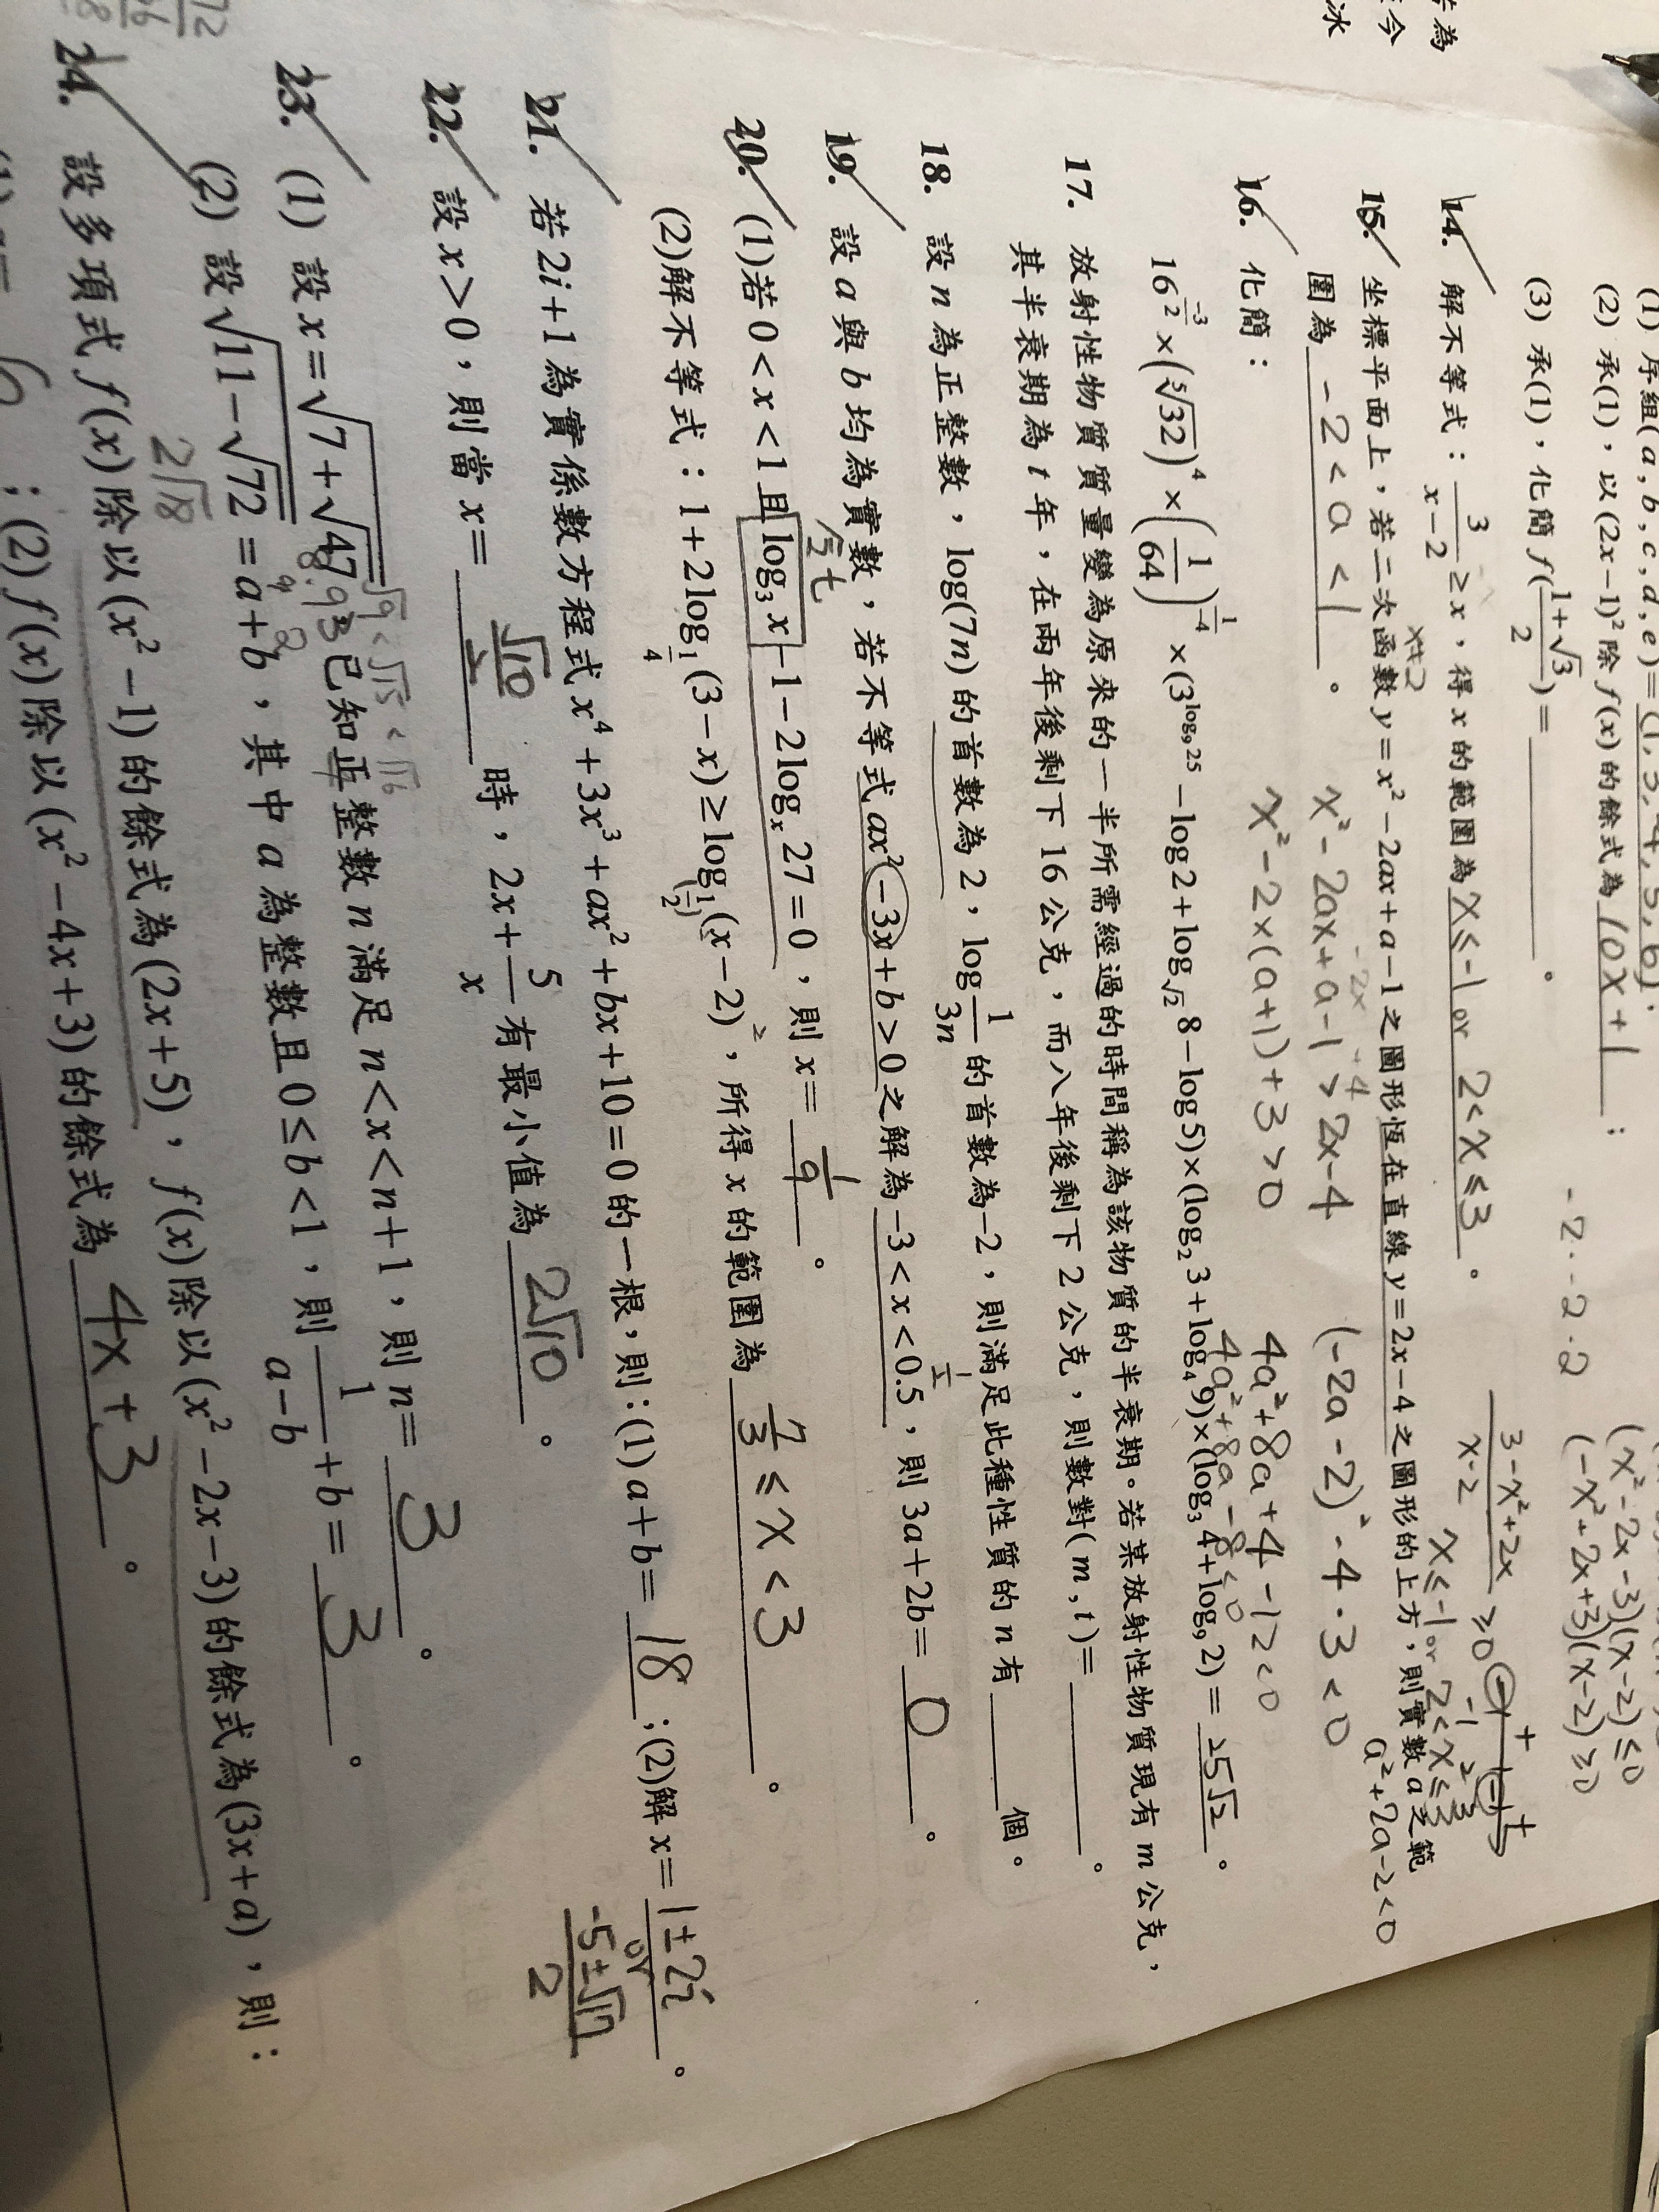 (1) 序組(a, b, c, d, e) = (1, 3, -4, 5, 6)
(2) 承(1)，以(2x-1)²除 f(x) 的餘式為 10x+1；
(3) 承(1)，化簡 f((1+√3)/2) = ______。
-2·-2·2
(x²-2x-3)(x-2)≤0
(-x²+2x+3)(x-2)≥0
14. 解不等式：3/(x-2) ≥ x，得 x 的範圍為 x≤-1 or 2<x≤3。
x≠2
(3-x²+2x)/(x-2) ≥0
x≤-1 or 2<x≤3
15. 坐標平面上，若二次函數 y=x²-2ax+a-1 之圖形恆在直線 y=2x-4 之圖形的上方，則實數 a 之範
圍為 -2<a<1。
x²-2ax+a-1>2x-4
-2x +4
x²-2x(a+1)+3>0
(-2a-2)²-4·3<0
4a²+8a+4-12<0
4a²+8a-8<0
a²+2a-2<0
16. 化簡：
16^(-3/2)×(⁵√32)⁴×(1/64)^(1/-4)×(3^(log₉25)-log2+log_√2 8-log5)×(log₂3+log₄9)×(log₃4+log₉2)= 25√2。
17. 放射性物質質量變為原來的一半所需經過的時間稱為該物質的半衰期。若某放射性物質現有 m 公克，
其半衰期為 t 年，在兩年後剩下 16 公克，而八年後剩下 2 公克，則數對(m, t)= ______。
18. 設 n 為正整數，log(7n)的首數為 2，log 1/(3n) 的首數為-2，則滿足此種性質的 n 有 ______ 個。
19. 設 a 與 b 均為實數，若不等式 ax²-3x+b>0 之解為 -3<x<0.5，則 3a+2b= 0。
20. (1)若 0<x<1 且 log₃x-1-2logₓ27=0，則 x= 1/9。
(2)解不等式：1+2log_(1/4)(3-x)≥log_(1/2)(x-2)，所得 x 的範圍為 7/3≤x<3。
21. 若 2i+1 為實係數方程式 x⁴+3x³+ax²+bx+10=0 的一根，則：(1) a+b= 18；(2)解 x= 1±2i。
or (-5±√17)/2
22. 設 x>0，則當 x= √10/2 時，2x+5/x 有最小值為 2√10。
√9<√15<√16
23. (1) 設 x=√(7+√47) 已知正整數 n 滿足 n<x<n+1，則 n= 3。
(2) 設 √(11-√72)=a+b，其中 a 為整數且 0≤b<1，則 1/(a-b)+b= 3。
2√18
24. 設多項式 f(x)除以(x²-1)的餘式為(2x+5)，f(x)除以(x²-2x-3)的餘式為(3x+a)，則：
；(2) f(x)除以(x²-4x+3)的餘式為 4x+3。